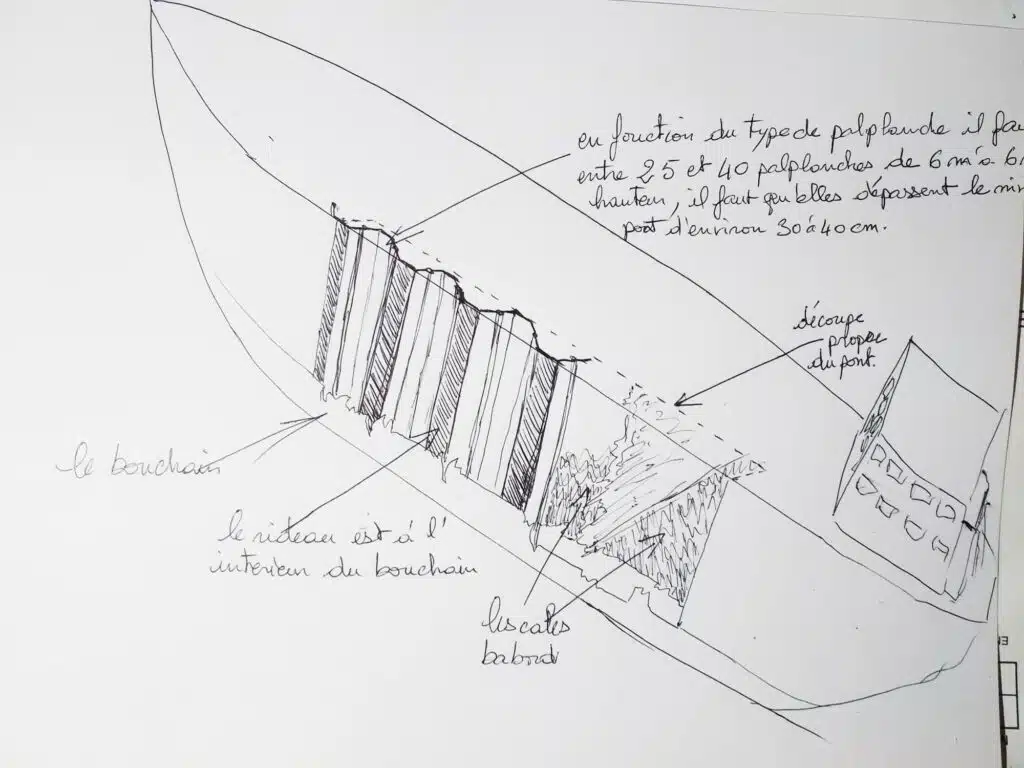 en fonction du type de palplanche il fau
entre 25 et 40 palplanches de 6 m à 6
hauteur, il faut qu'elles dépassent le
pont d'environ 30 à 40 cm.
découpe
propre
du pont.
le bouchain
le rideau est à l'
intérieur du bouchain
les cales
babord